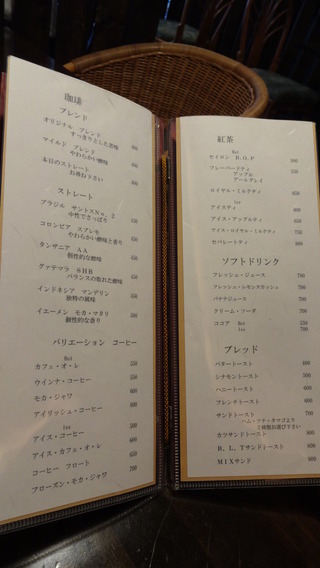 珈琲
ブレンド
オリジナル ブレンド
すっきりとした苦味
マイルド ブレンド
やわらかい酸味
本日のストレート
お尋ね下さい
ストレート
ブラジル サントスNo.2
中性でさっぱり
コロンビア スプレモ
やわらかい酸味と香り
タンザニア AA
個性的な酸味
グァテマラ SHB
バランスの取れた酸味
インドネシア マンデリン
独特の風味
イエーメン モカ・マタリ 500
個性的な香り
バリエーション コーヒー
Hot
カフェ・オ・レ 550
ウインナ・コーヒー 600
モカ・ジャワ 600
アイリッシュ・コーヒー 600
Ice
アイス・コーヒー 500
アイス・カフェ・オ・レ 650
コーヒー フロート 700
フローズン・モカ・ジャワ 700
紅茶
Hot
セイロン B.O.P 500
フレーバードティ 600
アップル
アールグレイ
ロイヤル・ミルクティ 650
Ice
アイスティ 600
アイス・アップルティ 650
アイス・ロイヤル・ミルクティ 750
セパレートティ 900
ソフトドリンク
フレッシュ・ジュース 700
フレッシュ・レモンスカッシュ 700
バナナジュース 700
クリーム・ソーダ 700
ココア Hot 550
Ice 700
ブレッド
バタートースト
シナモントースト
ハニートースト
フレンチトースト
サンドトースト
ハム・ツナ・タマゴより
2種類お選び下さい
カツサンドトースト
B.L.Tサンドトースト
MIXサンド